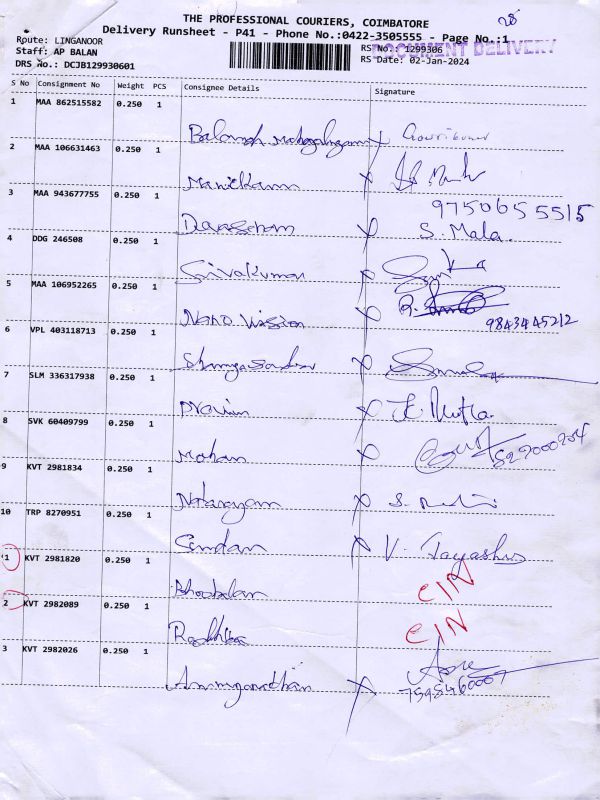 THE PROFESSIONAL COURIERS, COIMBATORE
Delivery Runsheet - P41 - Phone No.:0422-3505555 - Page No.:1
DOCUMENT DELIVERY
Route: LINGANOOR
Staff: AP BALAN
DRS No.: DCJB129930601
RS No.: 1299306
RS Date: 02-Jan-2024
S No Consignment No Weight PCS Consignee Details Signature
1 MAA 862515582 0.250 1
2 MAA 106631463 0.250 1
Manickam
3 MAA 943677755 0.250 1
9750655515
S. Mala.
4 DDG 246508 0.250 1
Sivakumar
5 MAA 106952265 0.250 1
Nano Vission
9843445212
6 VPL 403118713 0.250 1
7 SLM 336317938 0.250 1
Pravin
8 SVK 60409799 0.250 1
Mohan
9 KVT 2981834 0.250 1
Natarayam
10 TRP 8270951 0.250 1
11 KVT 2981820 0.250 1
Bhoobalan CIN
2 KVT 2982089 0.250 1
Radhika CIN
3 KVT 2982026 0.250 1
7598460007